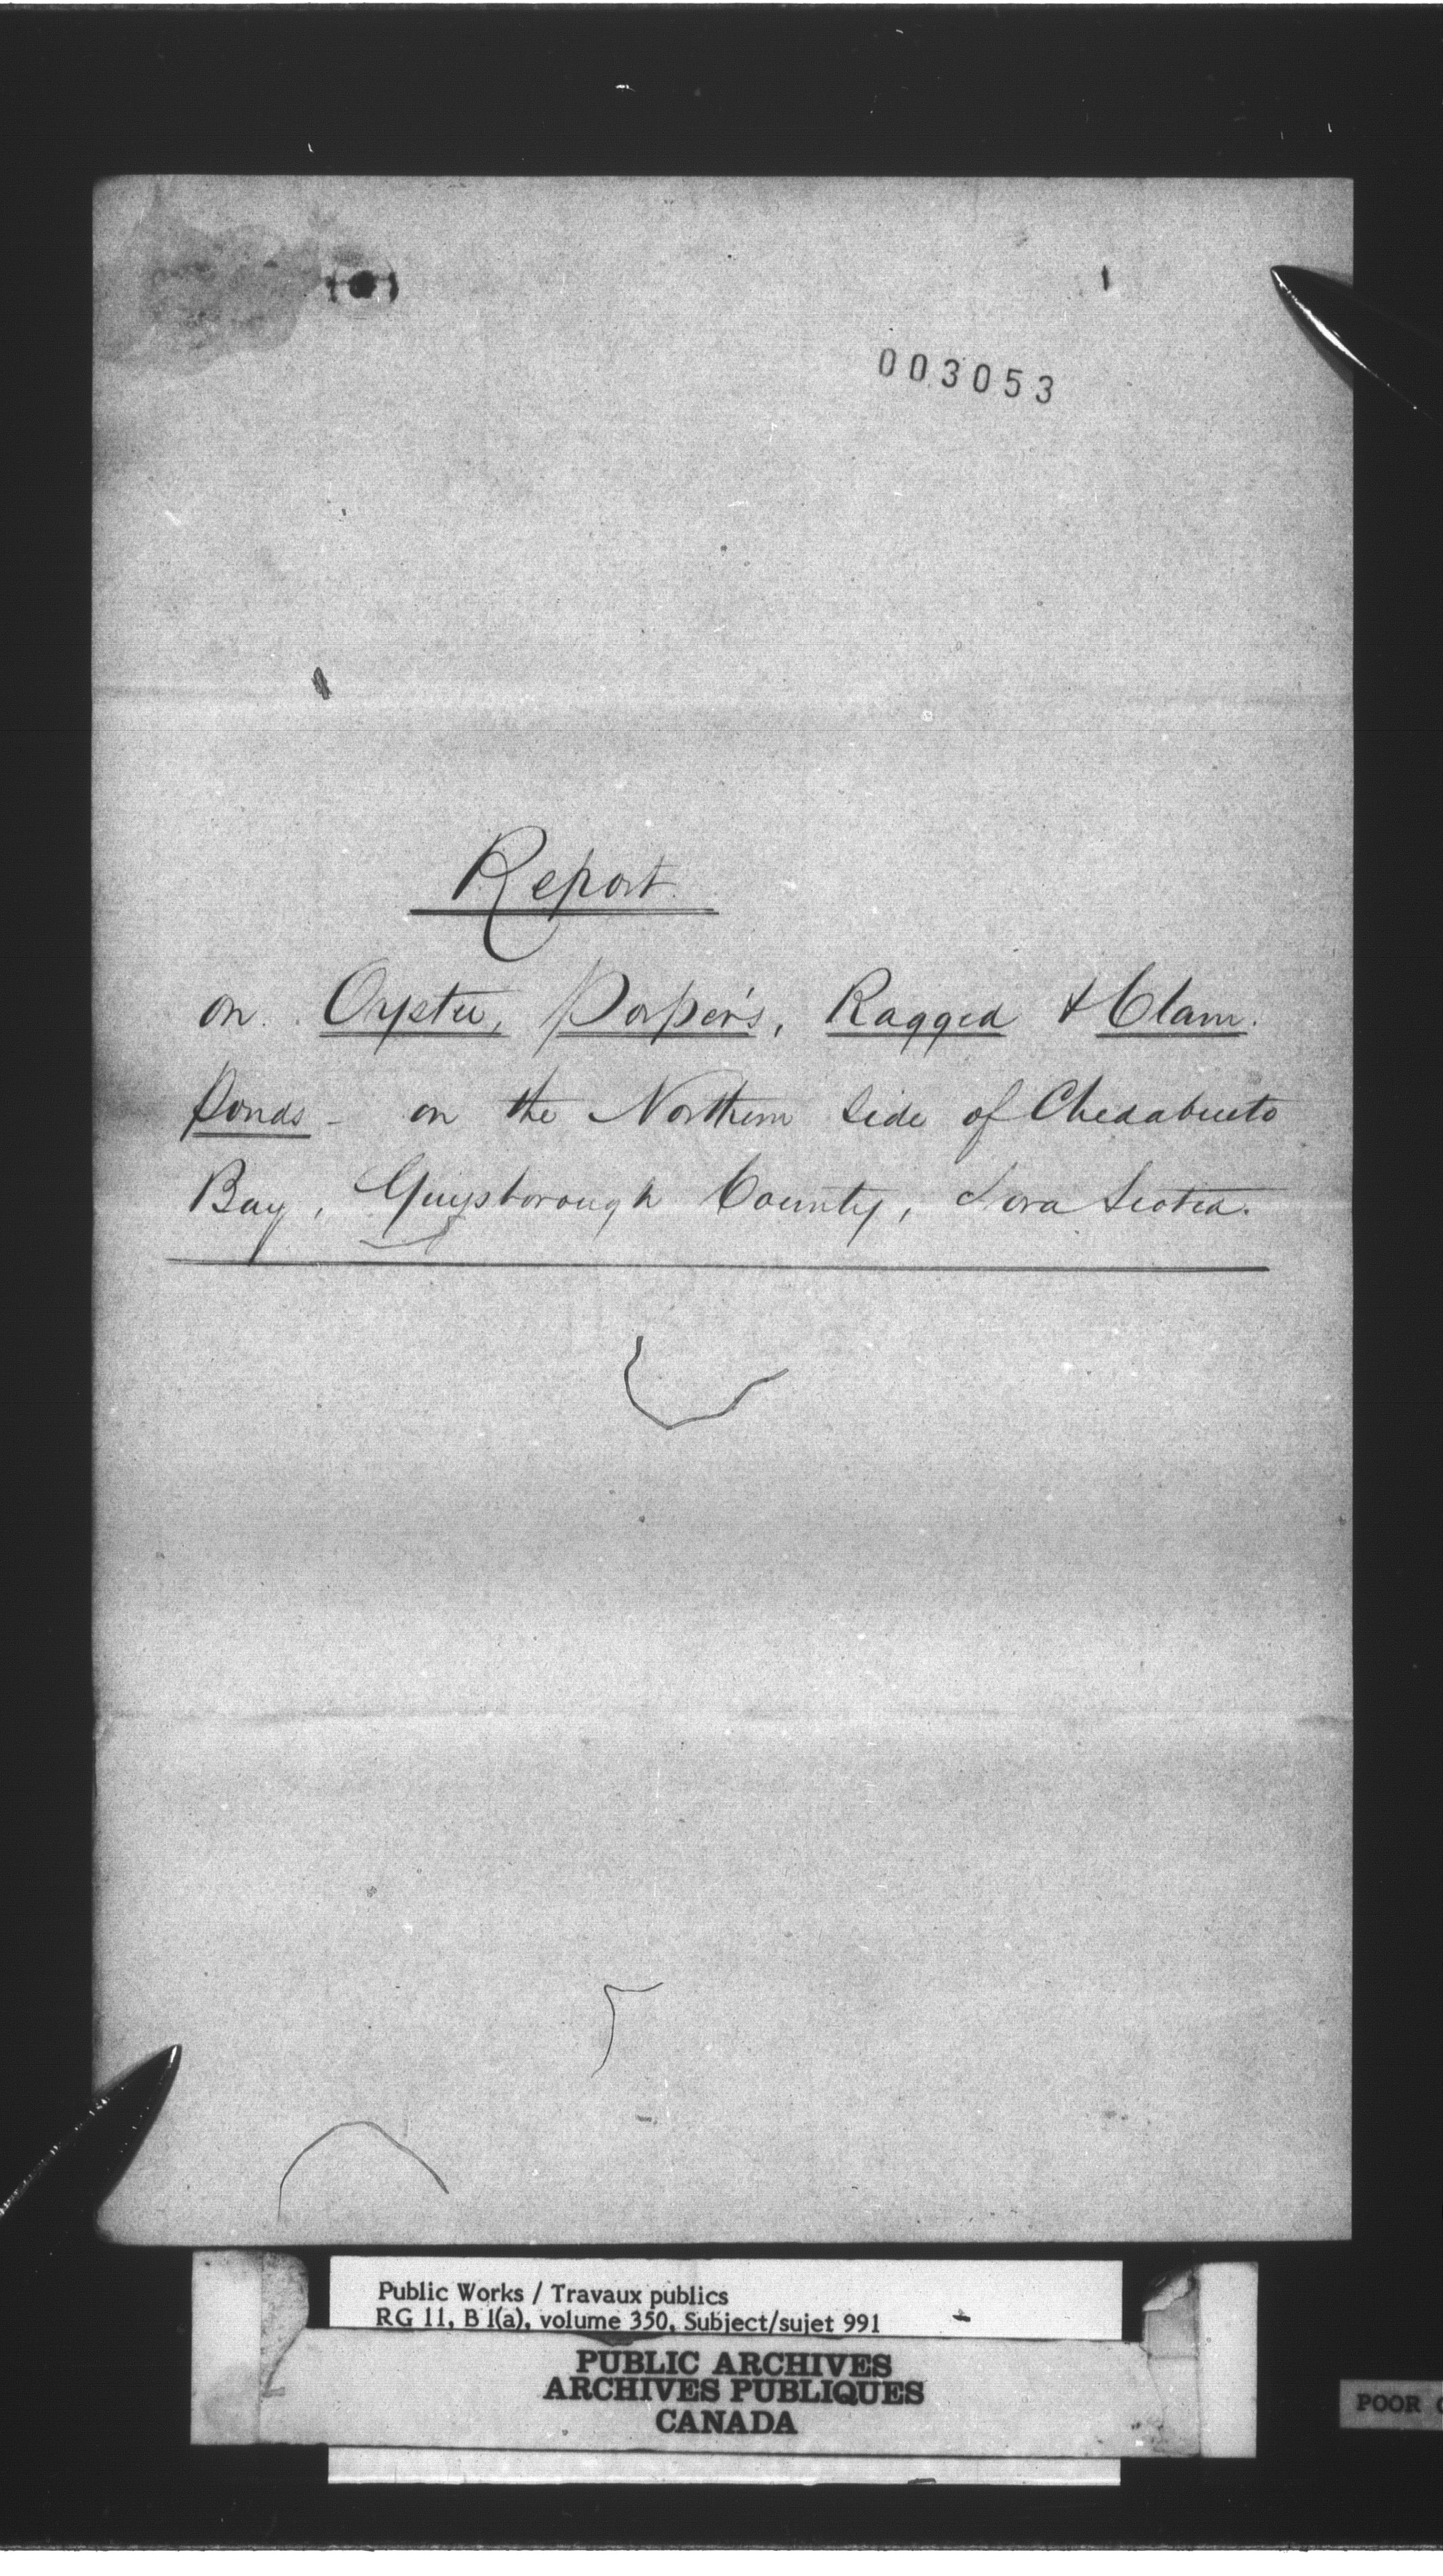 003053
Report.
on Oyster, Porper's, Ragged & Clam.
Ponds - on the Northern side of Chedabucto
Bay, Guysborough County, Nova Scotia.
Public Works / Travaux publics
RG 11, B 1(a), volume 350, Subject/sujet 991
PUBLIC ARCHIVES
ARCHIVES PUBLIQUES
CANADA
POOR